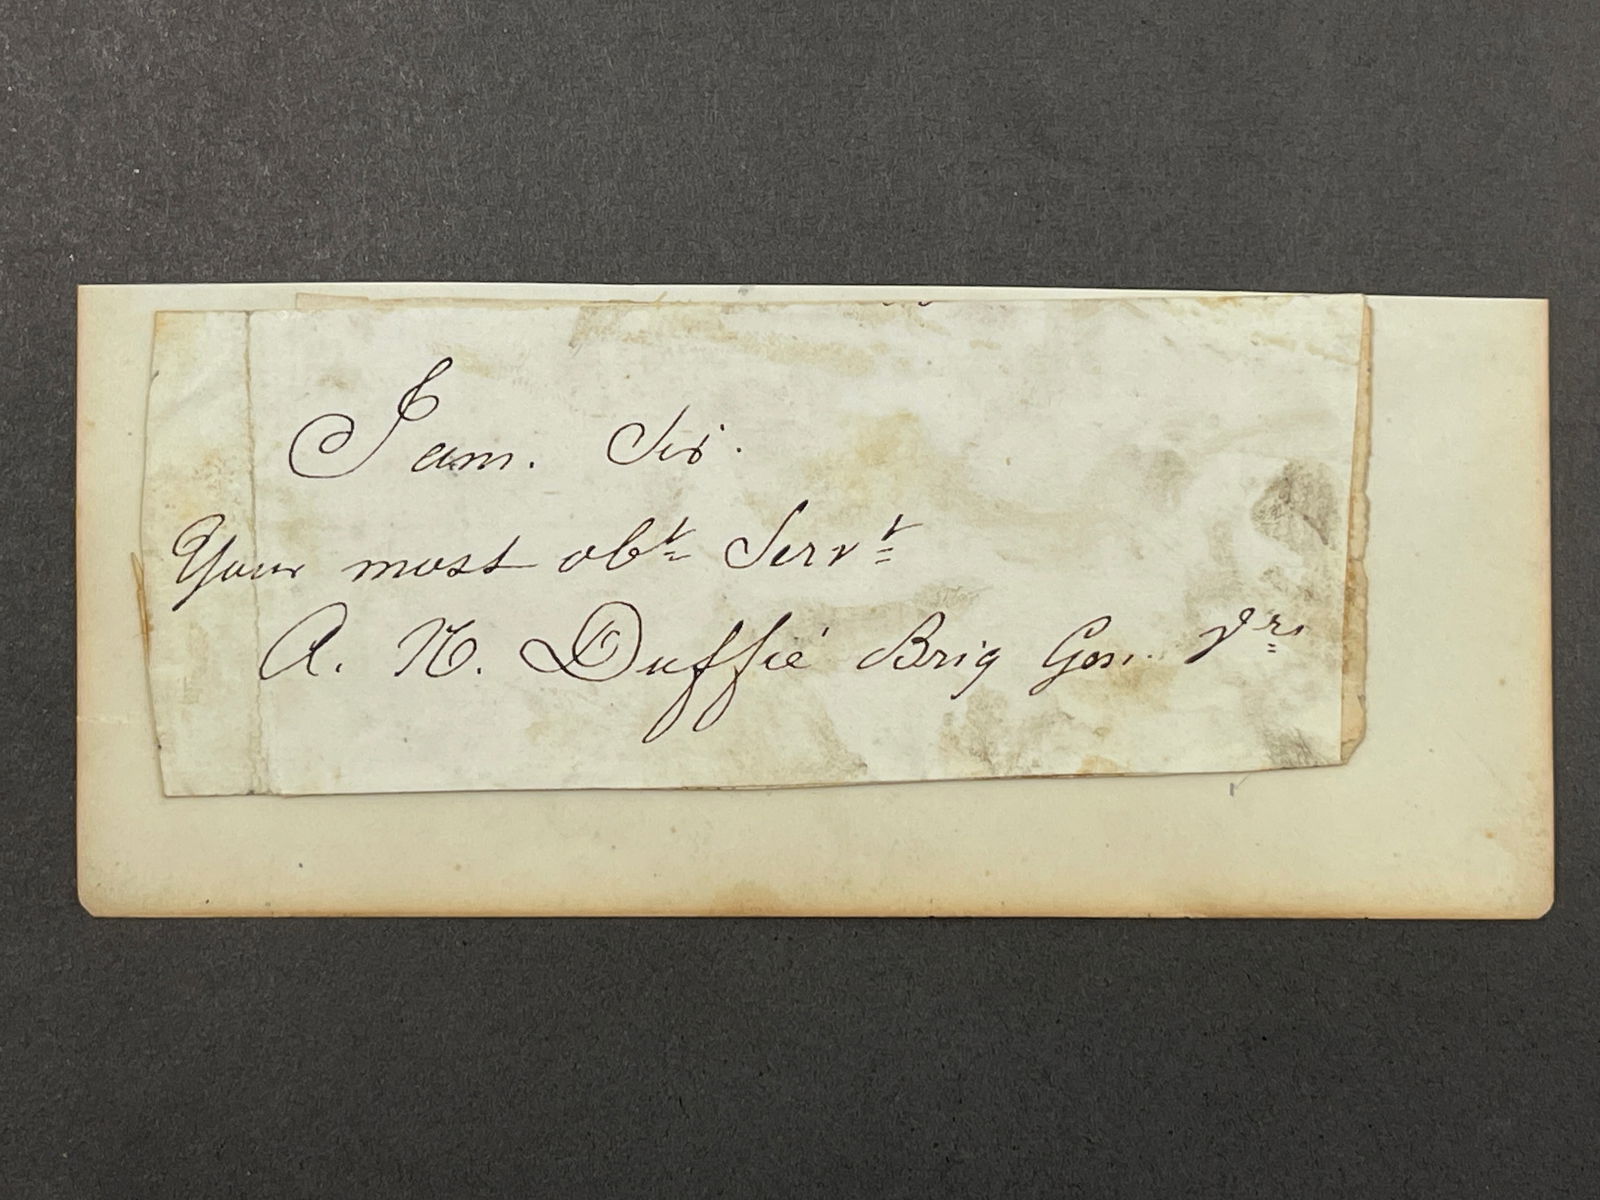 I am. Sir.
Your most obt Servt
A. N. Duffié Brig Gen.